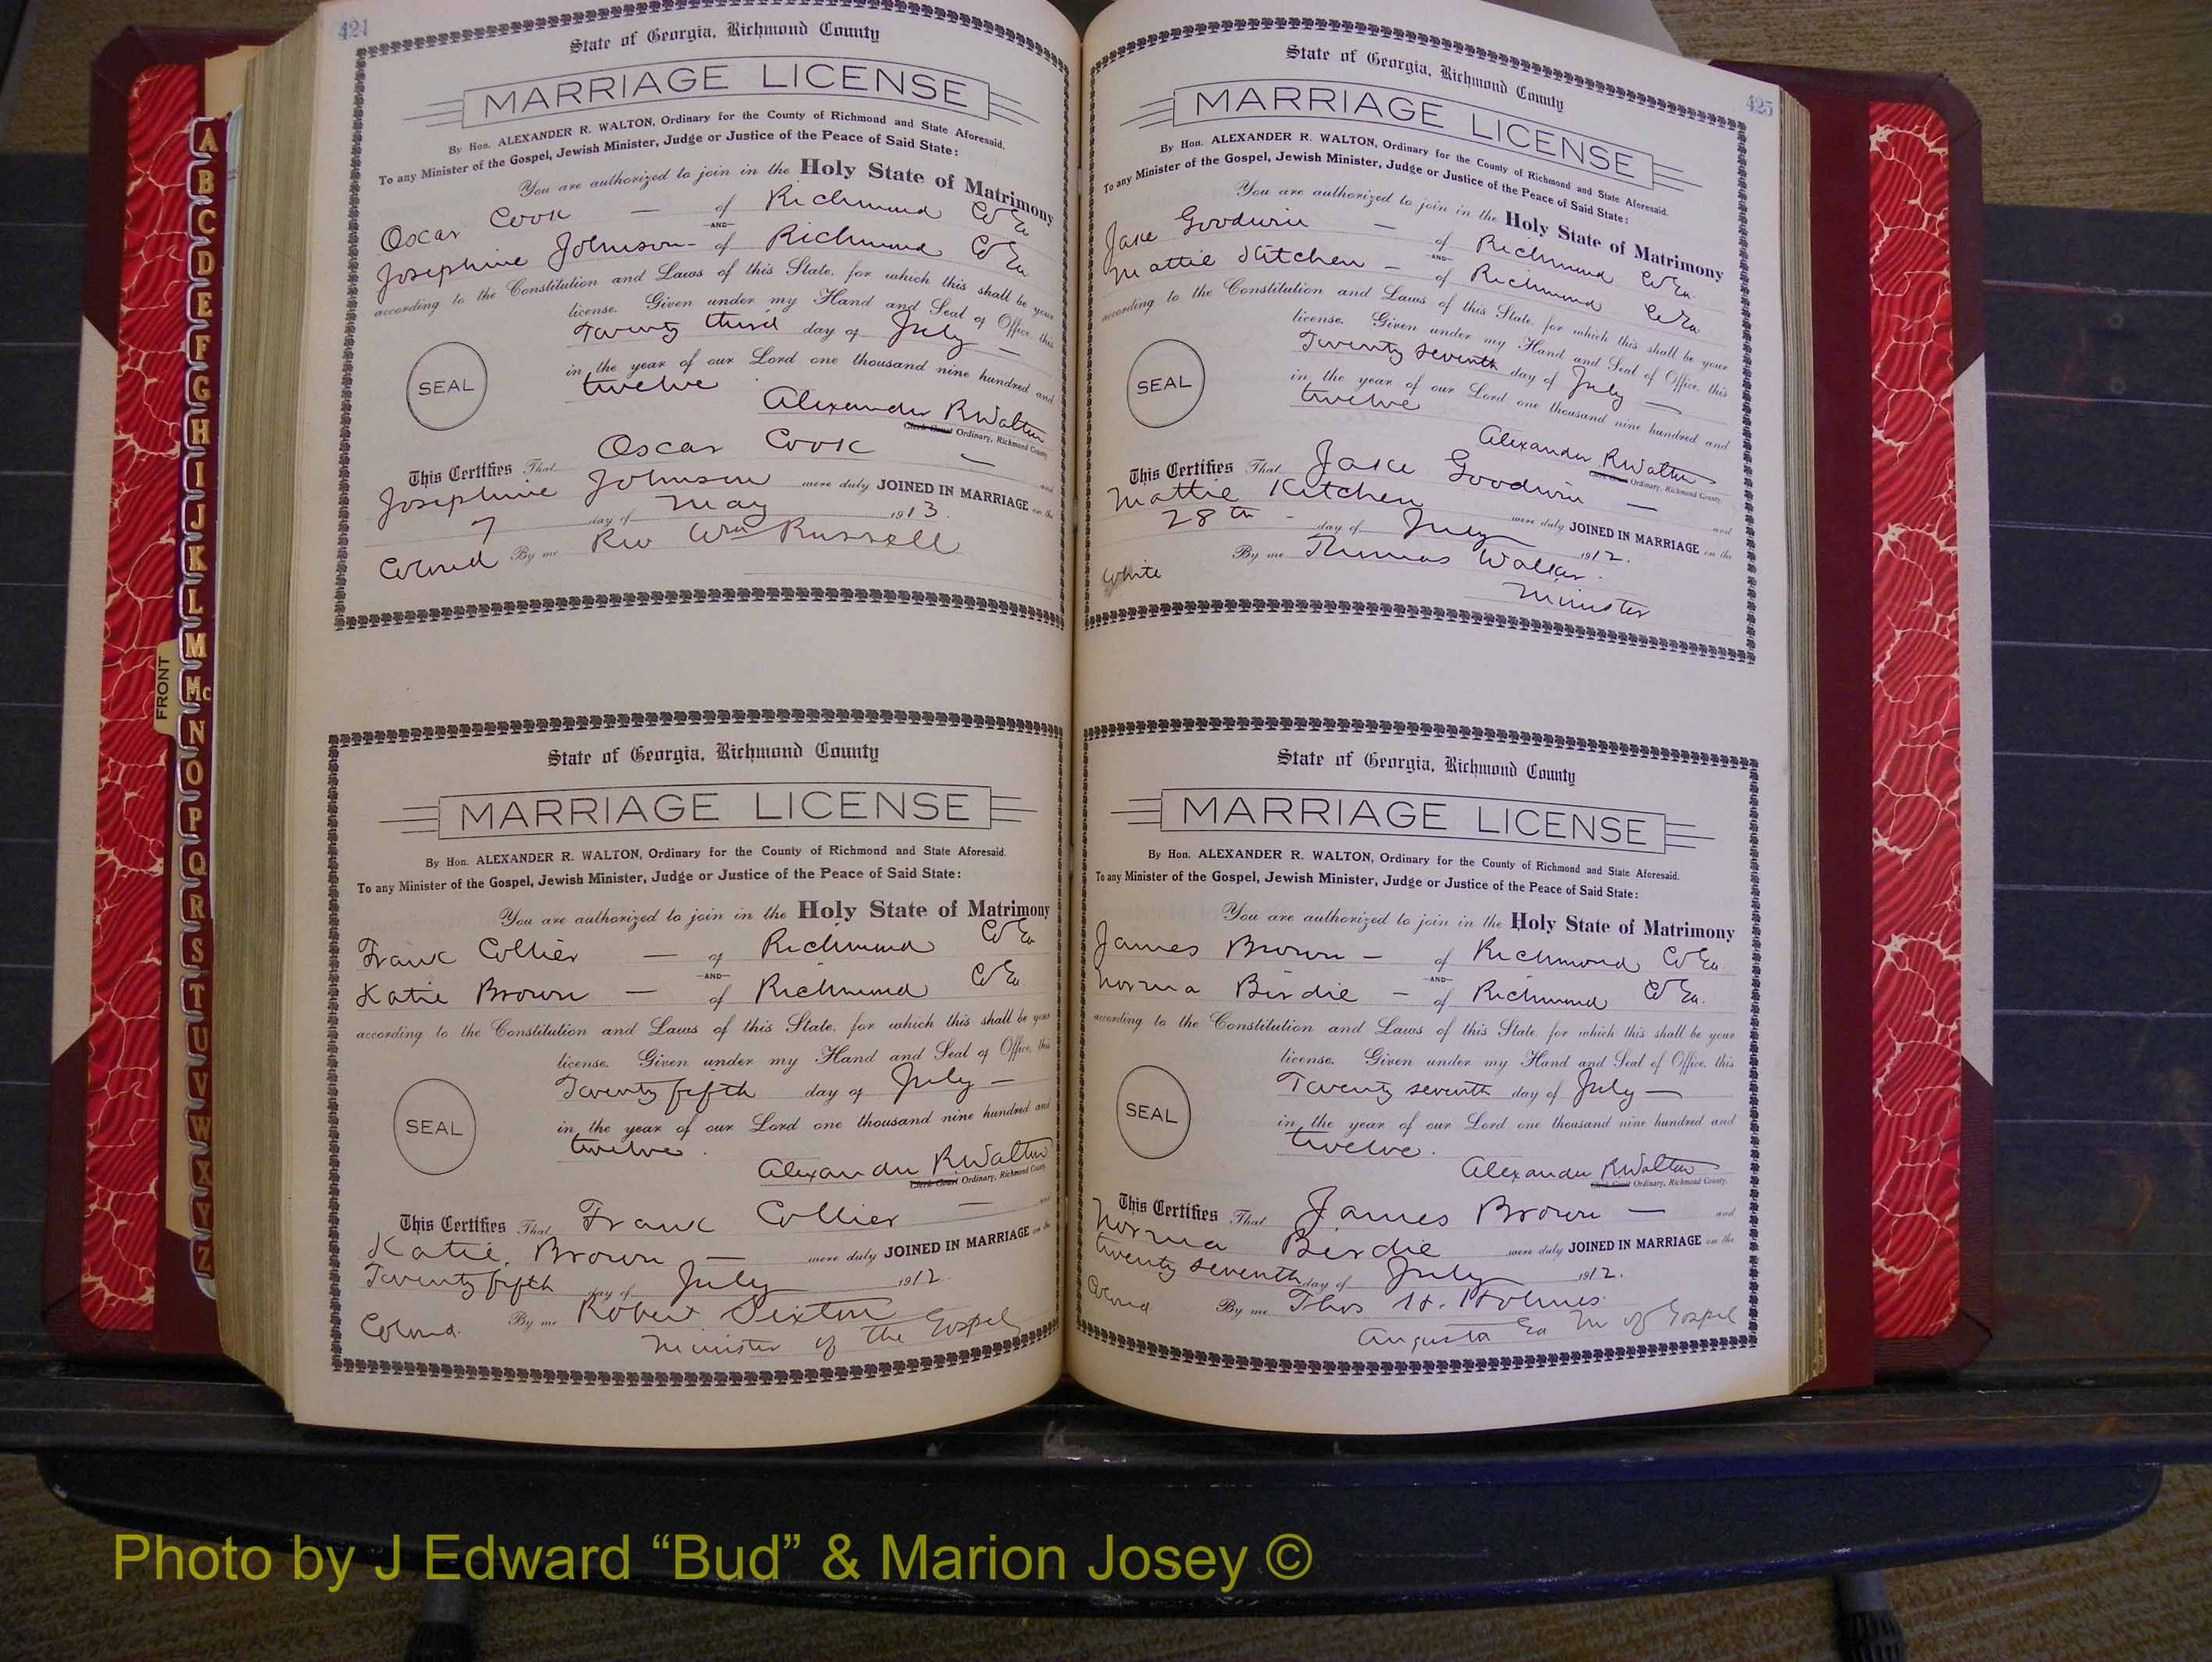 424
State of Georgia, Richmond County
MARRIAGE LICENSE
By Hon. ALEXANDER R. WALTON, Ordinary for the County of Richmond and State Aforesaid.
To any Minister of the Gospel, Jewish Minister, Judge or Justice of the Peace of Said State:
You are authorized to join in the Holy State of Matrimony
Oscar Cook — of Richmond Co Ga
—AND—
Josephine Johnson - of Richmond Co Ga
according to the Constitution and Laws of this State, for which this shall be your
license. Given under my Hand and Seal of Office, this
Twenty third day of July —
in the year of our Lord one thousand nine hundred and
twelve
SEAL
Alexander R Walton
Clerk Court Ordinary, Richmond County
This Certifies That Oscar Cook — and
Josephine Johnson were duly JOINED IN MARRIAGE on the
7 day of May 1913.
Colored By me Rev Wm Russell
State of Georgia, Richmond County
MARRIAGE LICENSE
By Hon. ALEXANDER R. WALTON, Ordinary for the County of Richmond and State Aforesaid.
To any Minister of the Gospel, Jewish Minister, Judge or Justice of the Peace of Said State:
You are authorized to join in the Holy State of Matrimony
Frank Collier — of Richmond Co Ga
—AND—
Katie Brown — of Richmond Co Ga
according to the Constitution and Laws of this State, for which this shall be your
license. Given under my Hand and Seal of Office, this
Twenty fifth day of July —
in the year of our Lord one thousand nine hundred and
twelve.
SEAL
Alexander R Walton
Clerk Court Ordinary, Richmond County
This Certifies That Frank Collier — and
Katie Brown — were duly JOINED IN MARRIAGE on the
Twenty fifth day of July 1912.
Colored. By me Robert Sexton
Minister of the Gospel
425
State of Georgia, Richmond County
MARRIAGE LICENSE
By Hon. ALEXANDER R. WALTON, Ordinary for the County of Richmond and State Aforesaid.
To any Minister of the Gospel, Jewish Minister, Judge or Justice of the Peace of Said State:
You are authorized to join in the Holy State of Matrimony
Jake Goodwin — of Richmond Co Ga.
—AND—
Mattie Kitchen — of Richmond Co Ga.
according to the Constitution and Laws of this State, for which this shall be your
license. Given under my Hand and Seal of Office, this
Twenty seventh day of July —
in the year of our Lord one thousand nine hundred and
twelve
SEAL
Alexander R Walton
Clerk Court Ordinary, Richmond County
This Certifies That Jake Goodwin — and
Mattie Kitchen were duly JOINED IN MARRIAGE on the
28th - day of July 1912.
White By me Thomas Walker.
Minister
State of Georgia, Richmond County
MARRIAGE LICENSE
By Hon. ALEXANDER R. WALTON, Ordinary for the County of Richmond and State Aforesaid.
To any Minister of the Gospel, Jewish Minister, Judge or Justice of the Peace of Said State:
You are authorized to join in the Holy State of Matrimony
James Brown — of Richmond Co Ga.
—AND—
Norma Birdie — of Richmond Co Ga.
according to the Constitution and Laws of this State, for which this shall be your
license. Given under my Hand and Seal of Office, this
Twenty seventh day of July —
in the year of our Lord one thousand nine hundred and
twelve.
SEAL
Alexander R Walton
Clerk Court Ordinary, Richmond County.
This Certifies That James Brown — and
Norma Birdie were duly JOINED IN MARRIAGE on the
twenty seventh day of July 1912.
Colored By me Thos H. Holmes.
Augusta Ga M of Gospel
FRONT
A
B
C
D
E
F
G
H
I
J
K
L
M
Mc
N
O
P
Q
R
S
T
U
V
W
X
Y
Z
Photo by J Edward “Bud” & Marion Josey ©